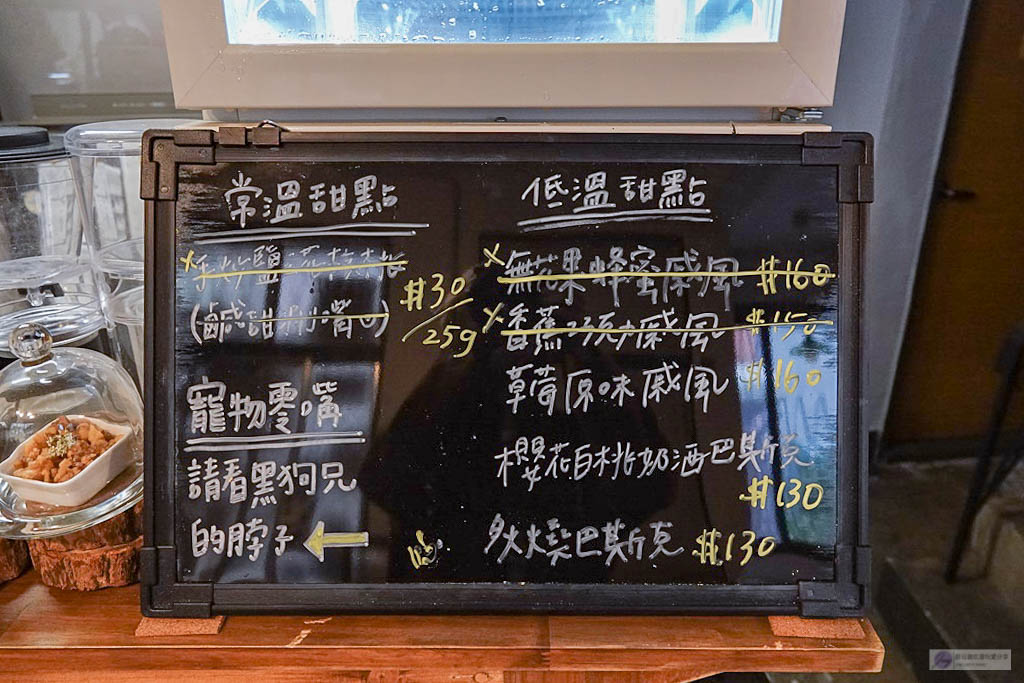 常溫甜點
手炒鹽
(鹹甜涮嘴の)
$30/25g
寵物零嘴
請看黑狗兄
的脖子
低溫甜點
無花果蜂蜜戚風 $160
香蕉巧克力戚風 $150
草莓原味戚風 $160
櫻花白桃奶酒巴斯克
$130
火燒巴斯克 $130